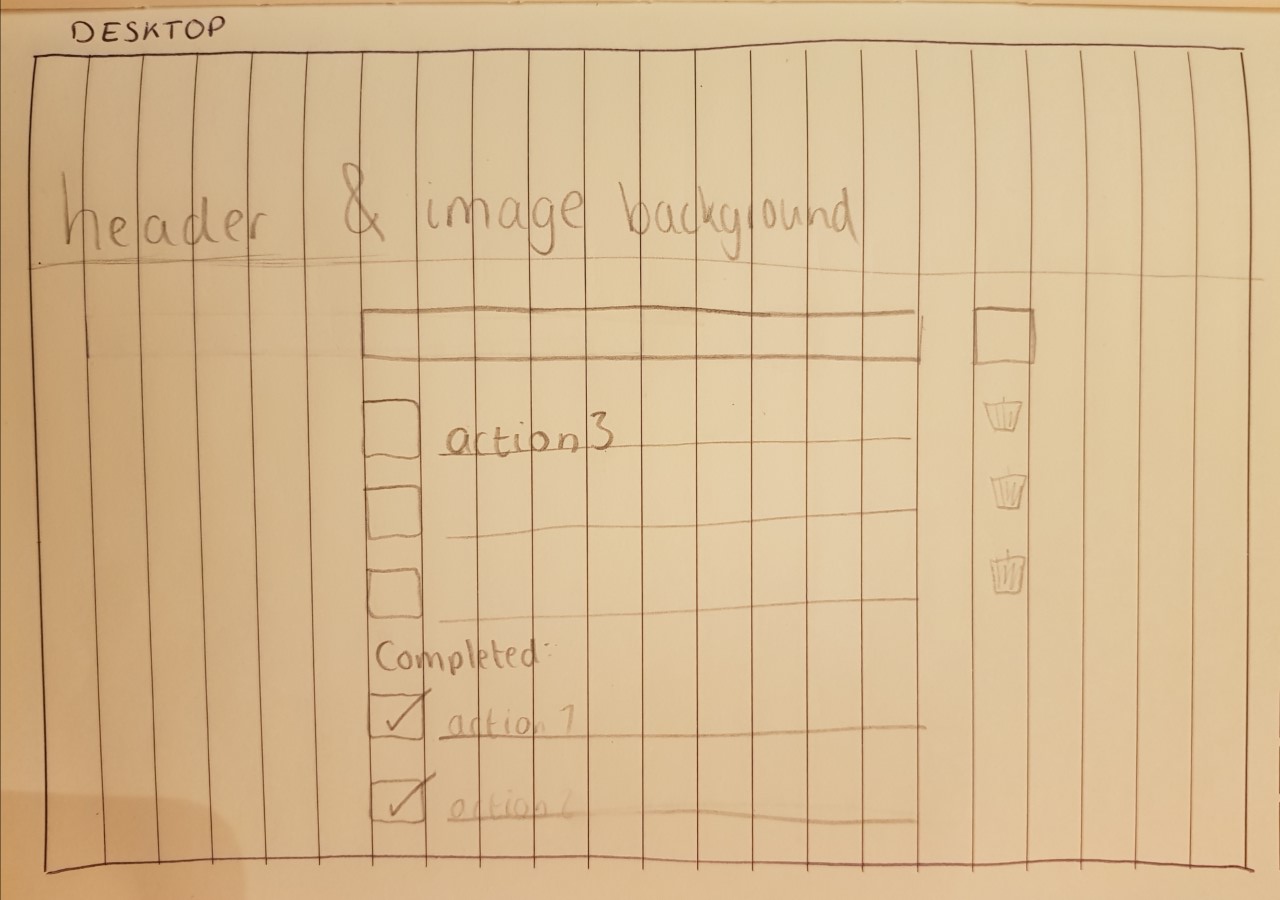 DESKTOP
header & image background
action 3
Completed:
action 1
action